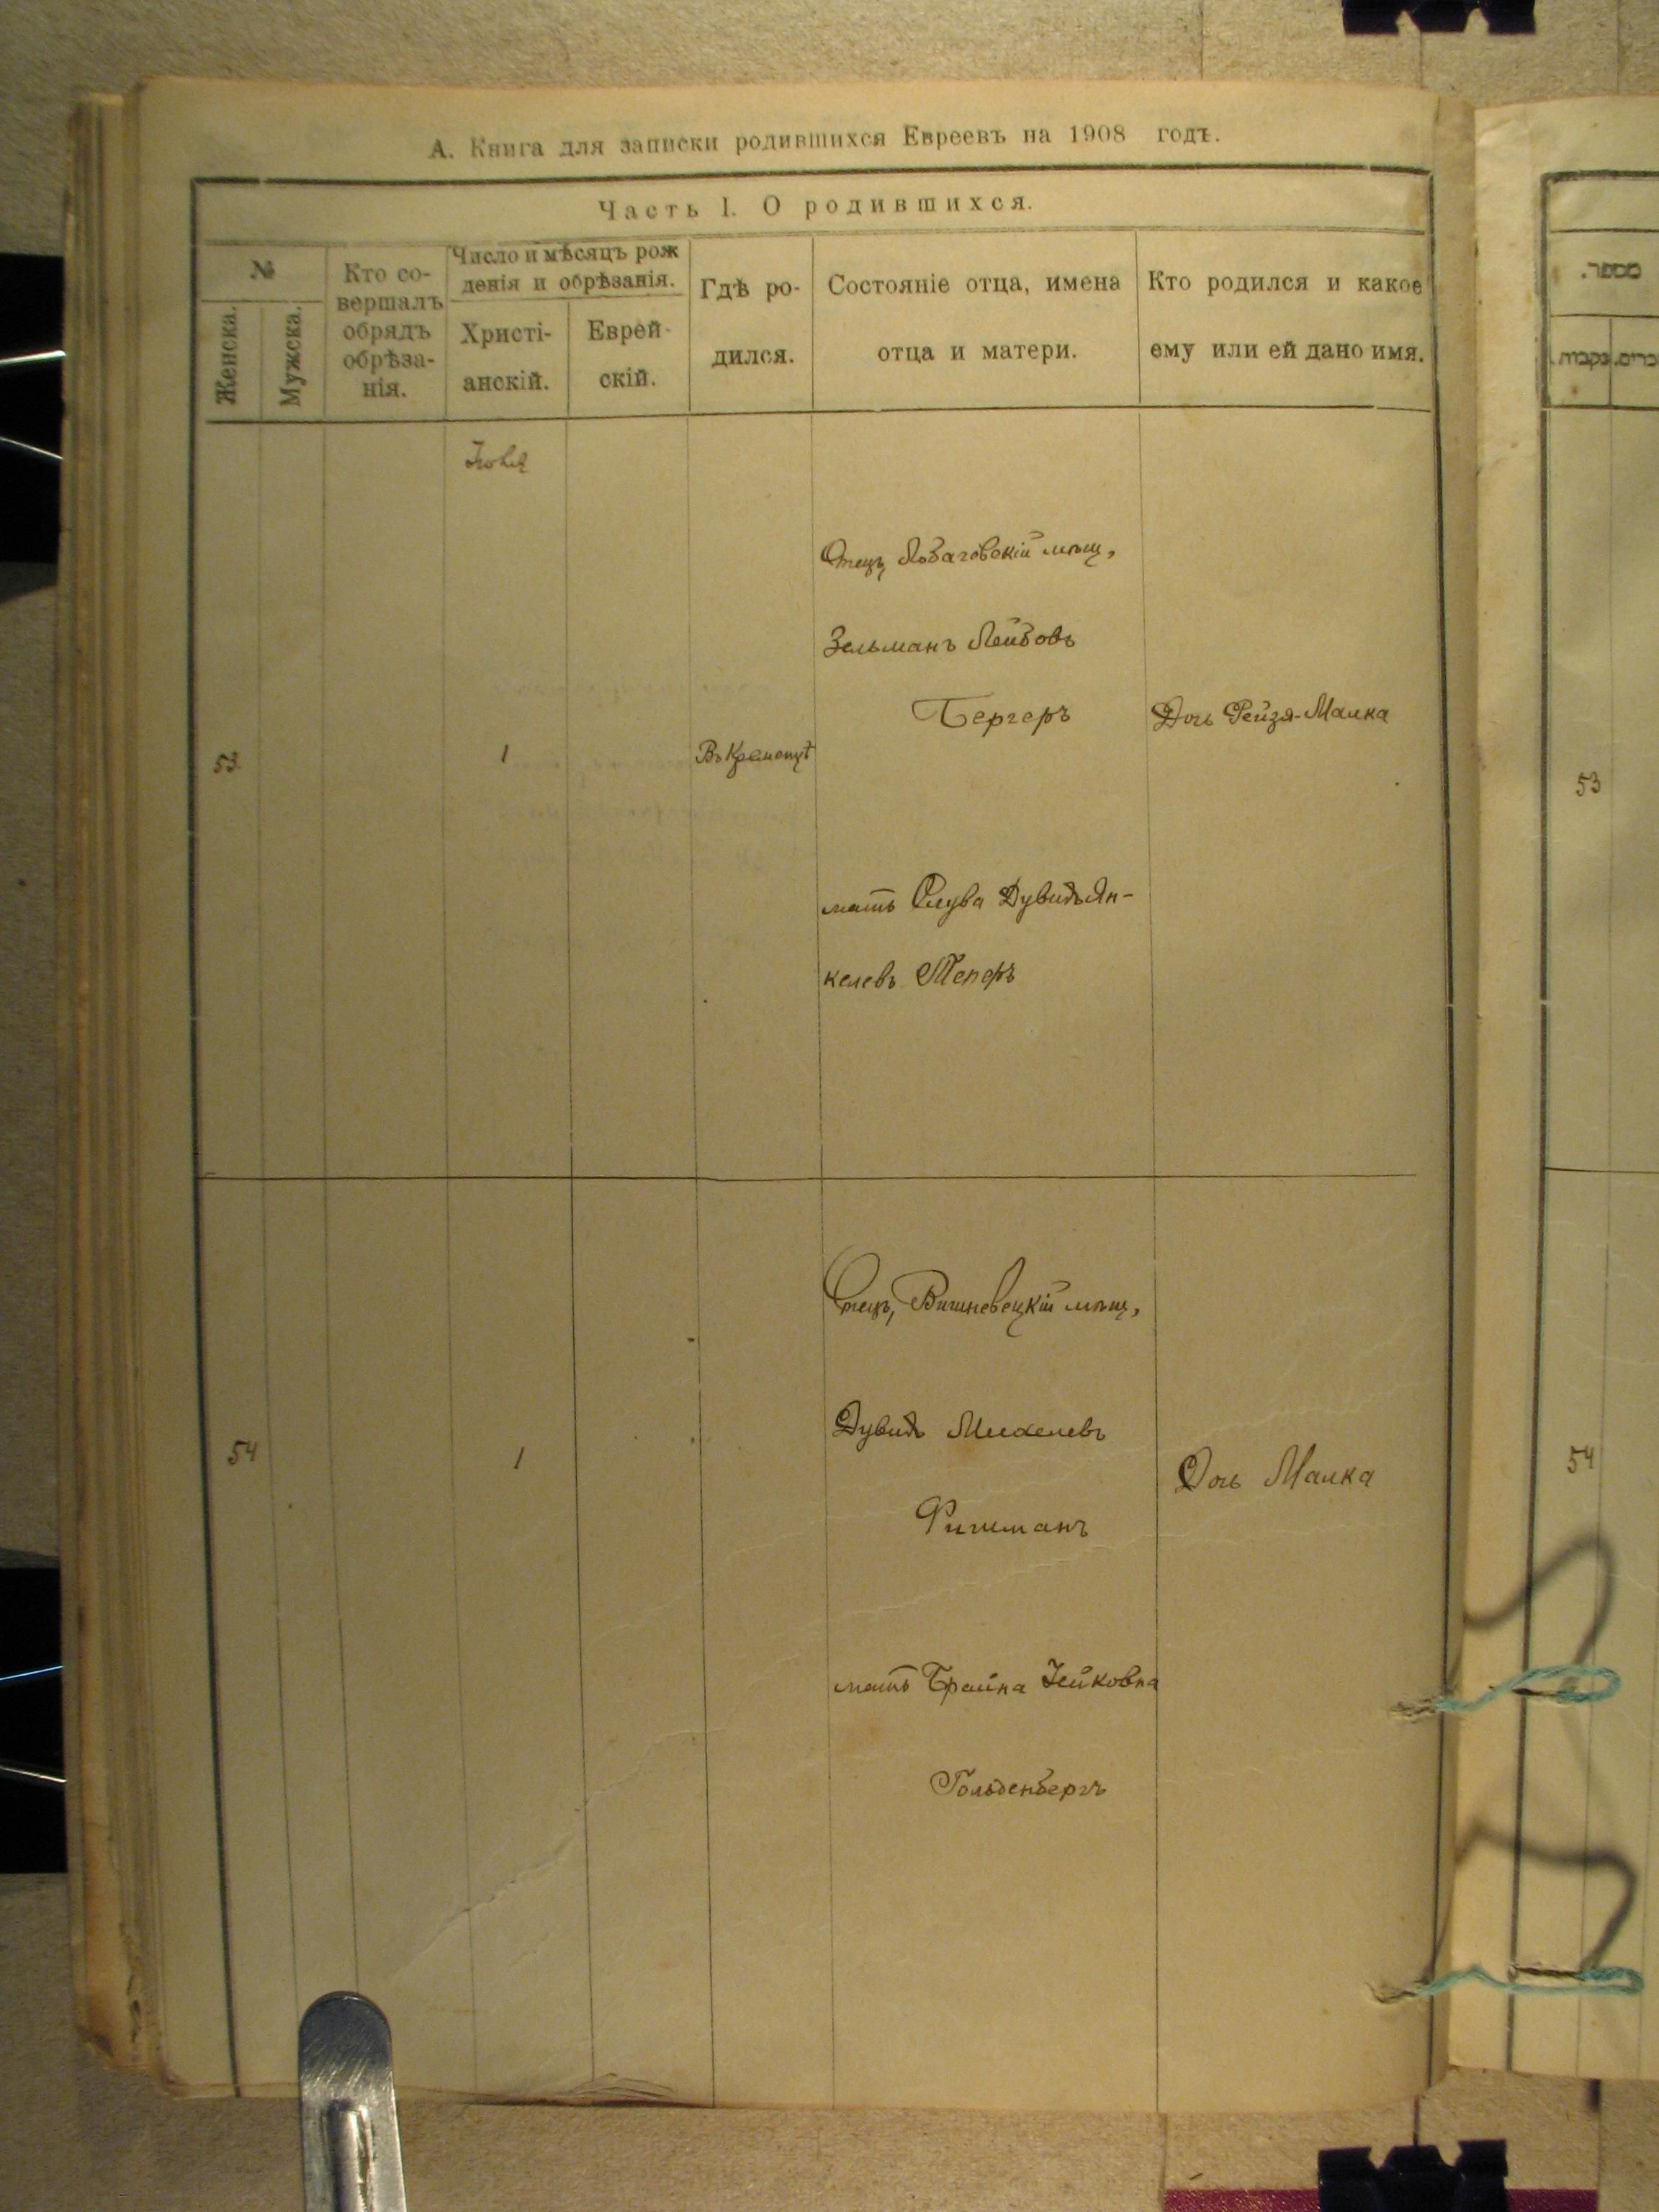 А. Книга для записки родившихся Евреевъ на 1908 годъ.
Часть I. О родившихся.
№
Женска.
Мужска.
Кто со-
вершалъ
обрядъ
обрѣза-
нія.
Число и мѣсяцъ рож
денія и обрѣзанія.
Христі-
анскій.
Еврей-
скій.
Гдѣ ро-
дился.
Состояніе отца, имена
отца и матери.
Кто родился и какое
ему или ей дано имя.
53
1
Въ Кременцѣ
Отецъ мѣщ,
Зельманъ Лейбовъ
Бергеръ
мать Дувидъ Ян-
келевъ Теперъ
Дочь Рейзя-Малка
54
1
Отецъ, Вишневецкій мѣщ,
Дувидъ Михелевъ
Фишманъ
мать Брайна Ицковна
Гольденбергъ
Дочь Малка
מספר.
נקבות.
53
54